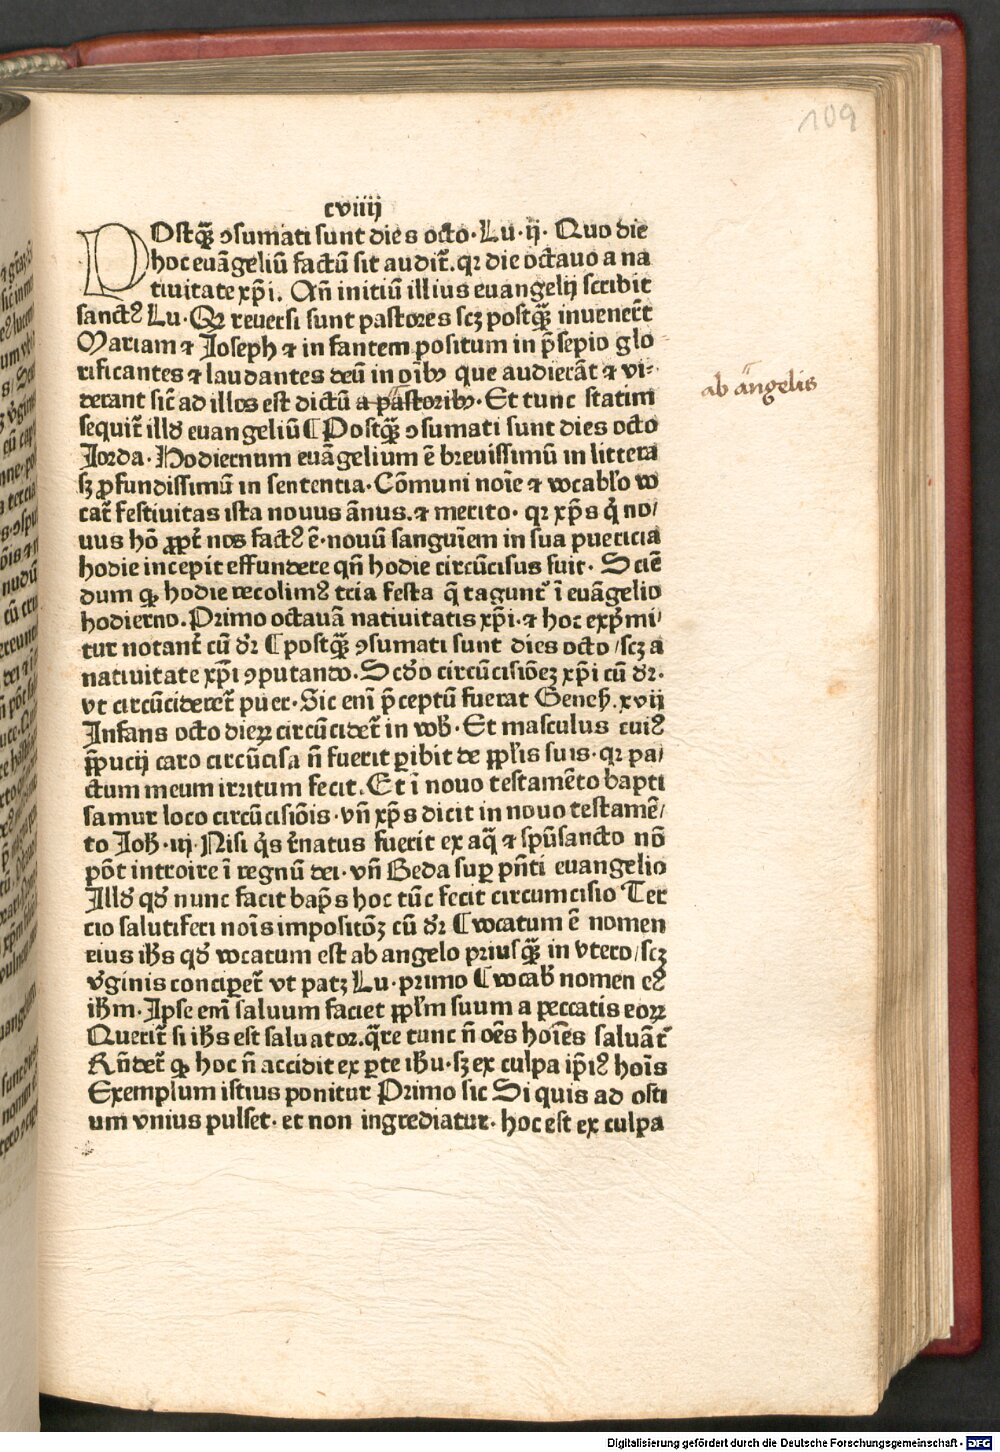 109
cviiij
POstq̄ꝫ ꝯsumati sunt dies octo· Lu· ij· Quo die
hoc euāgeliū factū sit audit᷑. qꝛ die octauo a na
tiuitate xp̄i. Añ initiū illius euangelij scribit
sanctꝰ Lu· Qꝛ reuersi sunt pastores scꝫ postq̄ꝫ inuener̄t
Mariam ⁊ Joseph ⁊ in fantem positum in p̄sepio glo
rificantes ⁊ laudantes deū in oīb⁹ que audierāt ⁊ vi⸗
derant sic̄ ad illos est dictū a pastorib⁹· Et tunc statim
ab angelis
sequit᷑ illđ euangeliū ⸿ Postq̄ꝫ ꝯsumati sunt dies octo
Jorda· Hodiernum euāgelium ē breuissimū in littera
sꝫ ꝓfundissimū in sententia· Cōmuni noīe ⁊ vocabl̓o vo
cat᷑ festiuitas ista nouus ānus. ⁊ merito· qꝛ xp̄s q̇ no/
uus hō ꝓpt̄ nos factꝰ ē· nouū sanguīem in sua puericia
hodie incepit effundere qn̄ hodie circūcisus fuit· Sciē
dum ꝙ hodie recolimꝰ tria festa q̄ tagunt᷑ ī euāgelio
hodierno. Primo octauā natiuitatis xp̄i· ⁊ hoc exp̄mi/
tur notant᷑ cū dꝛ ⸿ postq̄ꝫ ꝯsumati sunt dies octo /scꝫ a
natiuitate xp̄i ꝯputando· Scđo circūcisiōeꝫ xp̄i cū dꝛ·
vt circūcideret᷑ puer· Sic enī p̄ceptū fuerat Geneẜ. xvij
Jnfans octo dieꝝ circūcidet᷑ in vob̄· Et masculus cuiꝰ
p̄pucij caro circūcisa n̄ fuerit ꝑibit de ppl̓is suis· qꝛ pa/
ctum meum irritum fecit. Et ī nouo testamēto bapti
samur loco circūcisiōis· vn̄ xp̄s dicit in nouo testamē/
to Joh̄· iij· Nisi q̇s r̄natus fuerit ex aq̄ ⁊ spūsancto nō
pōt introire ī regnū dei· vn̄ Beda suꝑ pn̄ti euangelio
Jllđ qđ nunc facit bap̄s hoc tūc fecit circumcisio Ter
cio salutiferi noīs impositōꝫ cū dꝛ ⸿ vocatum ē nomen
eius ih̄s qđ vocatum est ab angelo priusq̄ꝫ in vtero/ scꝫ
v̓ginis conciꝑet᷑ vt patꝫ Lu· primo ⸿ vocab̄ nomen eꝰ
ih̄m· Jpse eni᷑ saluum faciet ppl̓m suum a peccatis eoꝝ
Querit᷑ si ih̄s est saluator. q̄re tunc n̄ oēs hoīes saluāt᷑
Rn̄det᷑ ꝙ hoc n̄ accidit ex ꝑte ih̄u· sꝫ ex culpa ip̄iꝰ hoīs
Exemplum istius ponitur Primo sic Si quis ad osti
um vnius pulset· et non ingrediatur· hoc est ex culpa
Digitalisierung gefördert durch die Deutsche Forschungsgemeinschaft - DFG